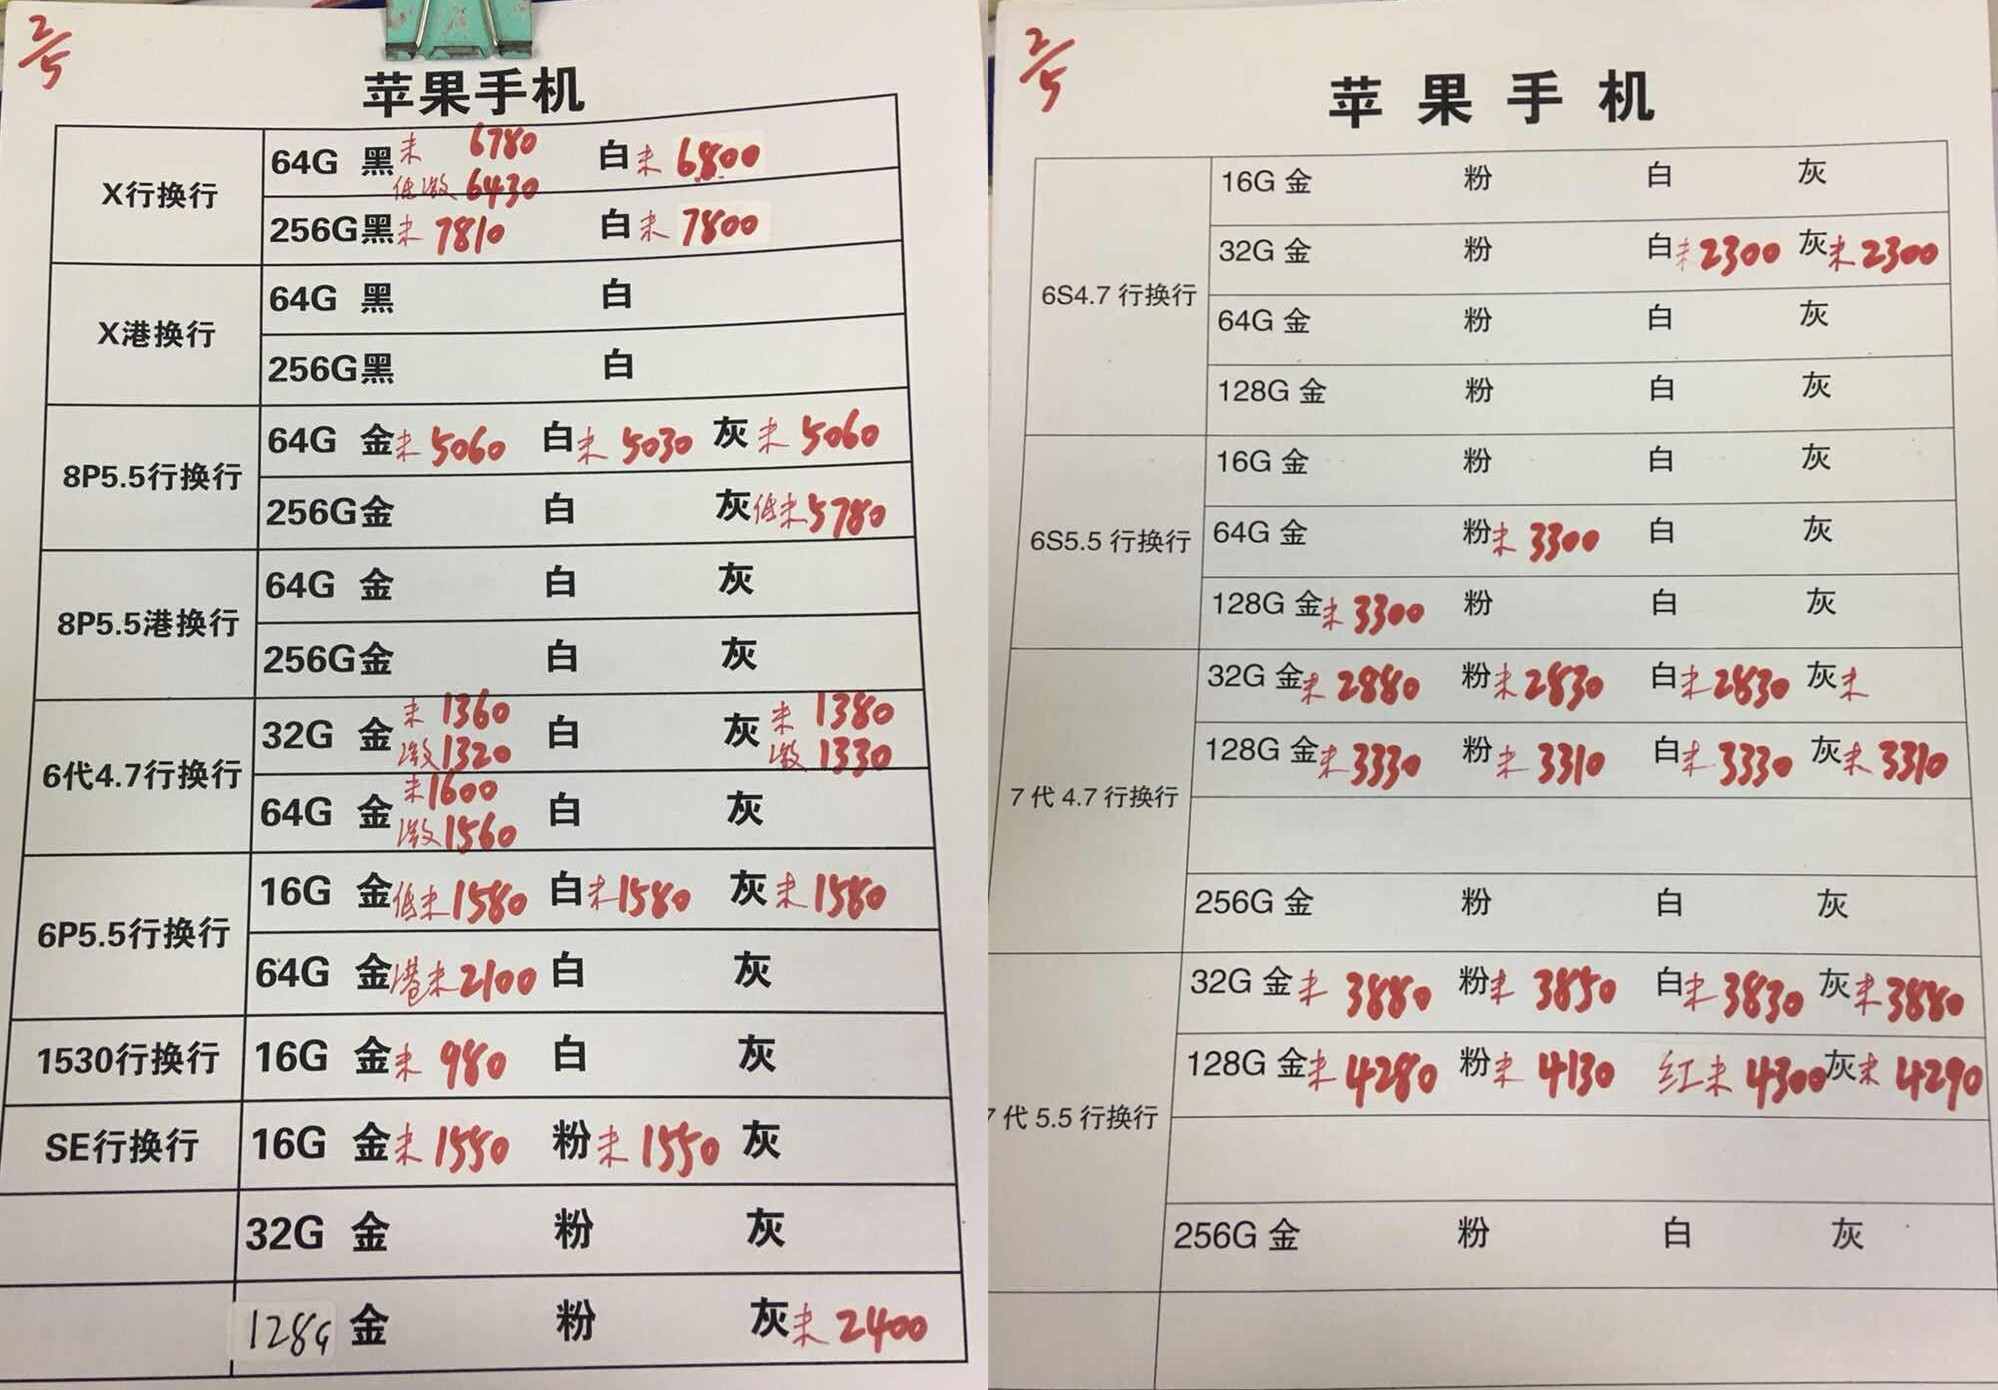 2/5
苹果手机
X行换行
64G 黑 未 6780 白 未 6800
低激 6430
256G 黑 未 7810 白 未 7800
X港换行
64G 黑 白
256G 黑 白
8P5.5行换行
64G 金 未 5060 白 未 5030 灰 未 5060
256G 金 白 灰 低未 5780
8P5.5港换行
64G 金 白 灰
256G 金 白 灰
6代4.7行换行
32G 金 未 1360 白 灰 未 1380
激 1320 激 1330
64G 金 未 1600 白 灰
激 1560
6P5.5行换行
16G 金 低未 1580 白 未 1580 灰 未 1580
64G 金 港未 2100 白 灰
1530行换行
16G 金 未 980 白 灰
SE行换行
16G 金 未 1550 粉 未 1550 灰
32G 金 粉 灰
128G 金 粉 灰 未 2400
2/5
苹果手机
6S4.7 行换行
16G 金 粉 白 灰
32G 金 粉 白 未 2300 灰 未 2300
64G 金 粉 白 灰
128G 金 粉 白 灰
6S5.5 行换行
16G 金 粉 白 灰
64G 金 粉 未 3300 白 灰
128G 金 未 3300 粉 白 灰
7 代 4.7 行换行
32G 金 未 2880 粉 未 2830 白 未 2830 灰 未
128G 金 未 3330 粉 未 3310 白 未 3330 灰 未 3310
256G 金 粉 白 灰
7 代 5.5 行换行
32G 金 未 3880 粉 未 3850 白 未 3830 灰 未 3880
128G 金 未 4280 粉 未 4130 红 未 4300 灰 未 4290
256G 金 粉 白 灰